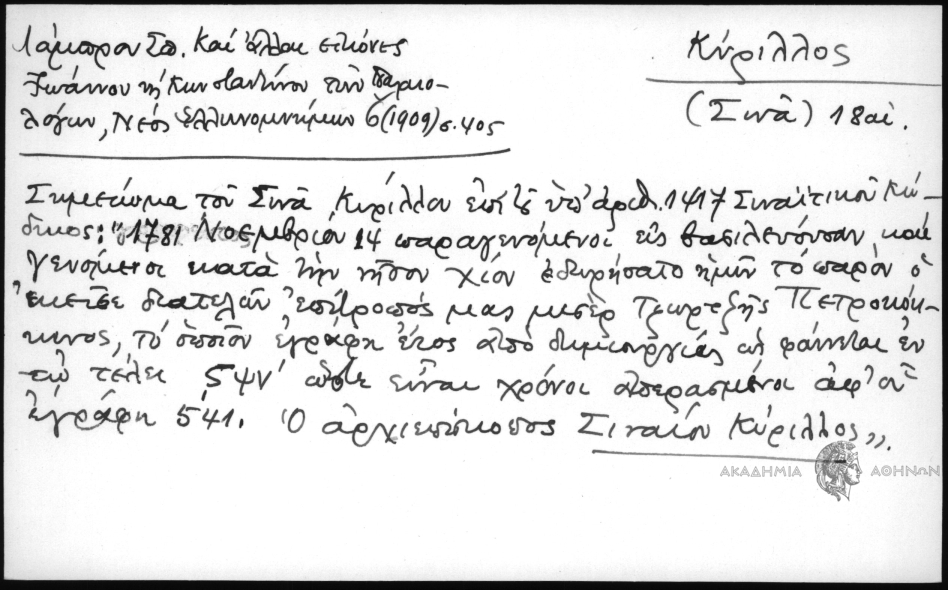 Λάμπρου Σπ. Καί ἄλλαι εἰκόνες
Ἰωάννου ἢ Κωνσταντίνου τῶν Παλαιο-
λόγων, Νέος Ἑλληνομνήμων 6 (1909) σ. 405
Κύριλλος
(Σινᾶ) 18 αἰ.
Σημείωμα τοῦ Σινᾶ Κυρίλλου ἐπί τοῦ ὑπ' ἀριθ. 1417 Σιναϊτικοῦ Κώ-
δικος: "1781 Νοεμβρίου 14 παραγενόμενοι εἰς βασιλεύουσαν, καί
γενόμενοι κατὰ τὴν νῆσον Χίον ἐδωρήσατο ἡμῖν τό παρὸν ὁ
ἐκεῖσε διατελῶν ἐπίτροπός μας μισέρ Τζωρτζῆς Πετροκόκ-
κινος, τό ὁποῖον ἐγράφη ἔτος ἀπό δημιουργίας ὡς φαίνεται ἐν
τῷ τέλει 5ψν' ὥστε εἶναι χρόνοι ἀπερασμένοι ἀφ' οὗ
ἐγράφη 541. Ὁ ἀρχιεπίσκοπος Σιναίου Κύριλλος".
ΑΚΑΔΗΜΙΑ ΑΘΗΝΩΝ